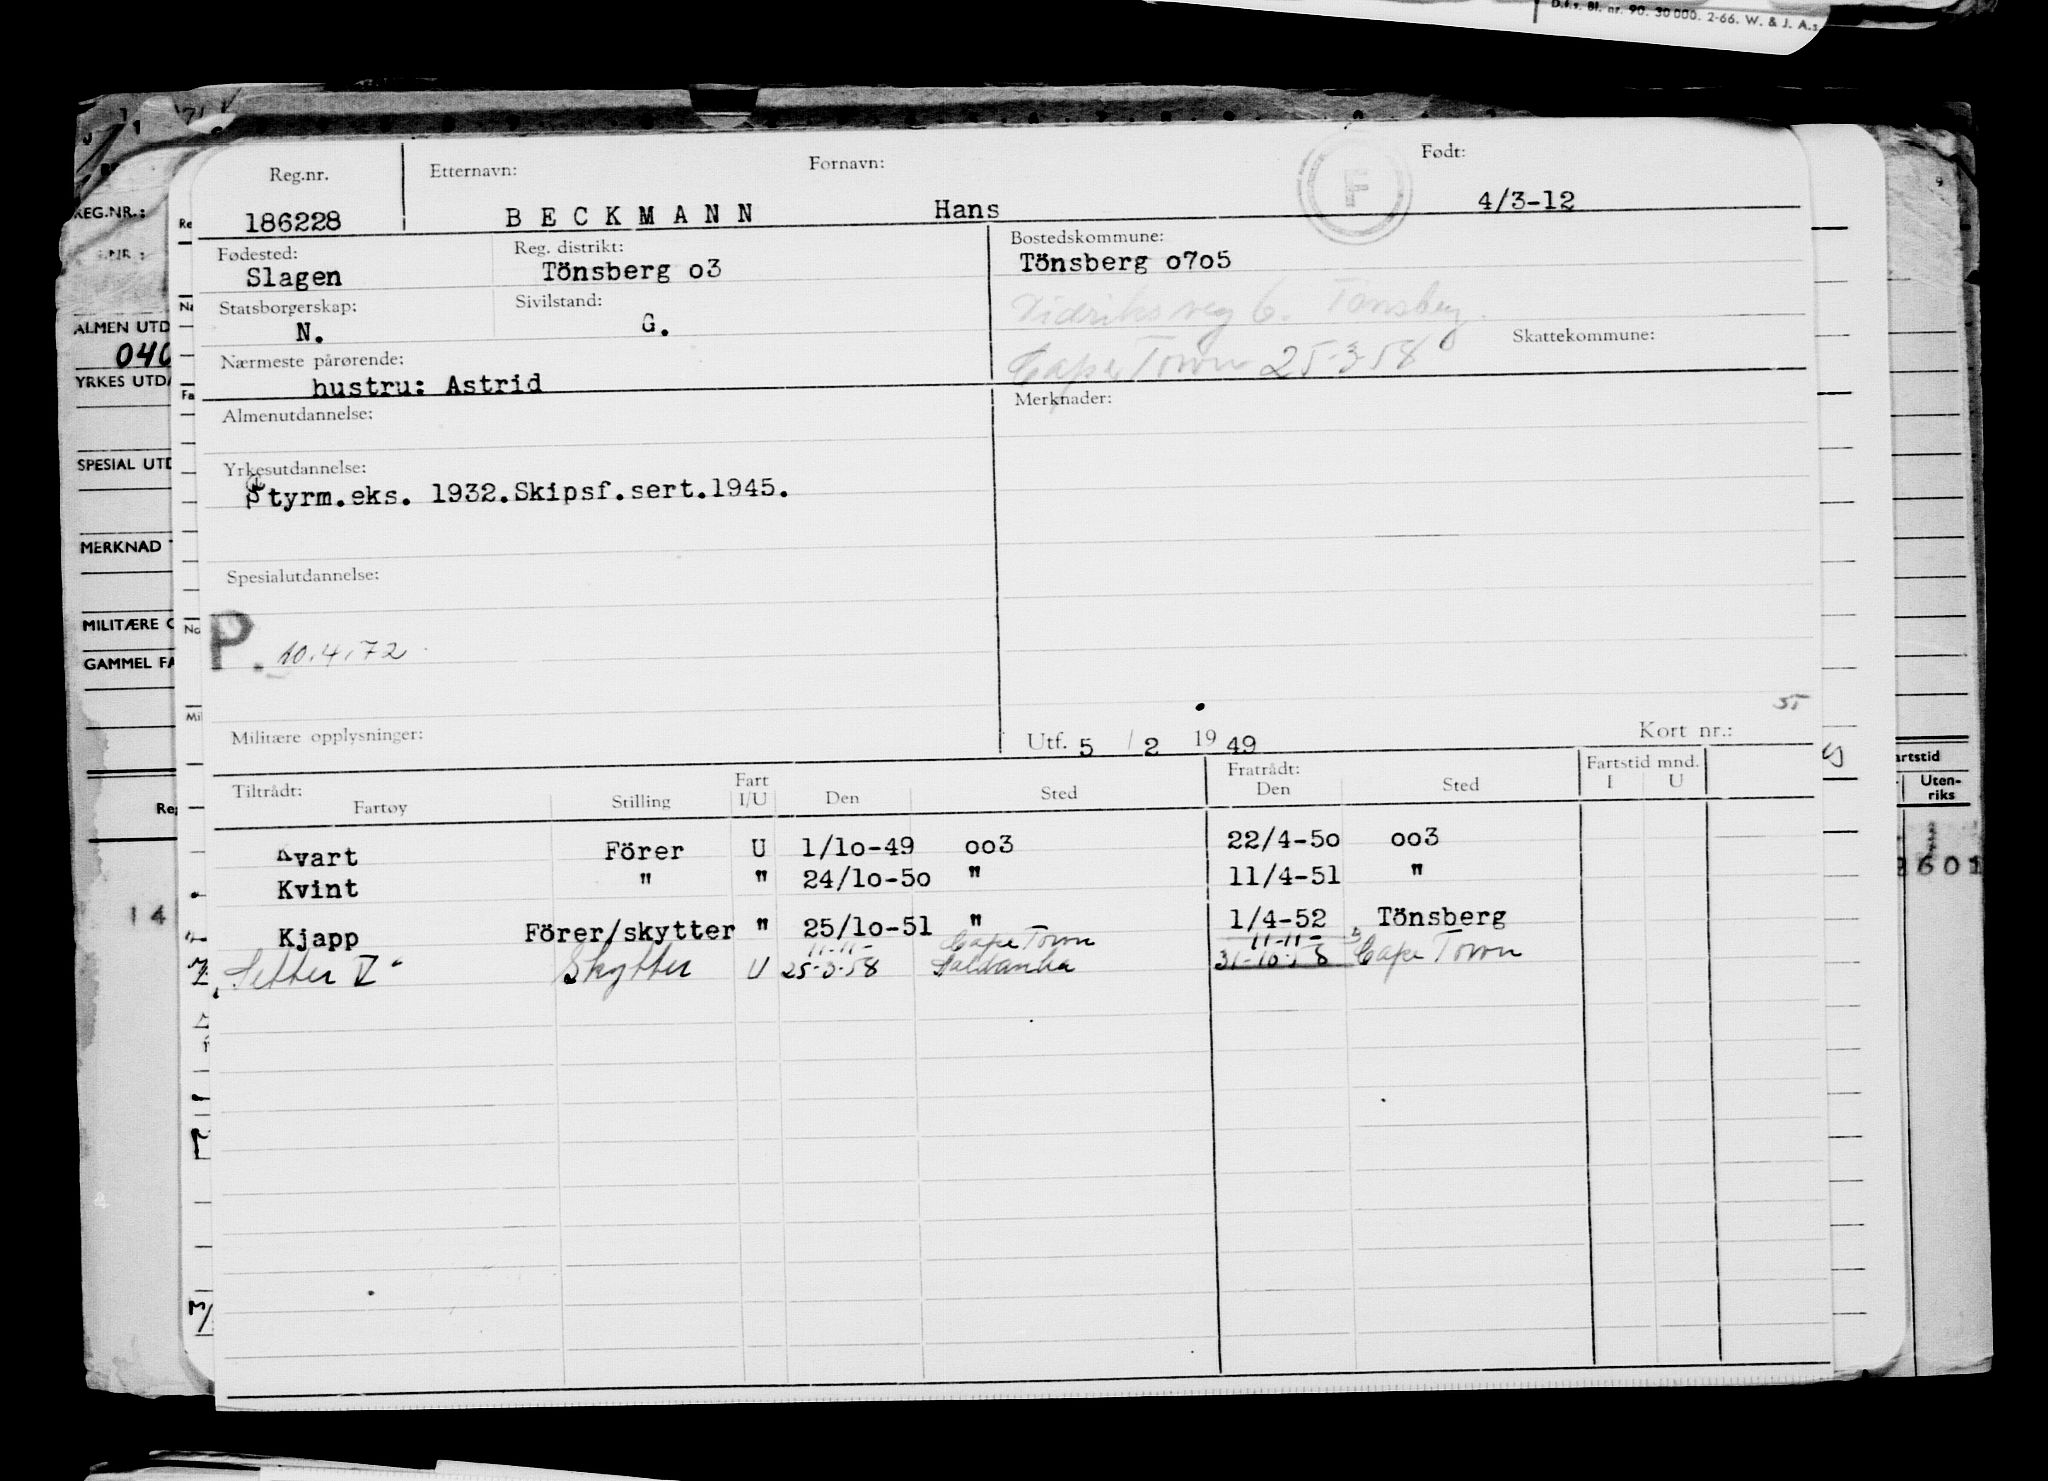 D.f.s. Bl. nr. 90. 30 000. 2-66. W. & J. A.s
Reg.nr. Etternavn: Fornavn: Født:
186228 B E C K M A N N Hans F 4/3-12
Fødested: Reg. distrikt: Bostedskommune:
Slagen Tönsberg o3 Tönsberg o7o5
Statsborgerskap: Sivilstand:
N. G.
6. Tønsberg.
Nærmeste pårørende: Skattekommune:
hustru: Astrid Cape Town 25-3-58
Almenutdannelse: Merknader:
Yrkesutdannelse:
Styrm.eks. 1932.Skipsf.sert.1945.
Spesialutdannelse:
P. 10.4.72
Militære opplysninger: Utf. 5 / 2 19 49 Kort nr.:
Tiltrådt: Fart Fratrådt: Fartstid mnd.
Fartøy Stilling I/U Den Sted Den Sted I U
Kvart Förer U 1/1o-49 oo3 22/4-5o oo3
Kvint " " 24/1o-5o " 11/4-51 "
Kjapp Förer/skytter " 25/1o-51 " 1/4-52 Tönsberg
11-11- Cape Town 11-11-
Setter V Skytter U 25-3-58 Saldanha 31-10-58 Cape Town
REG.NR.:
ALMEN UTD
040
YRKES UTDA
SPESIAL UTD
MERKNAD
MILITÆRE
GAMMEL FA
14
artstid
Uten-
riks
601